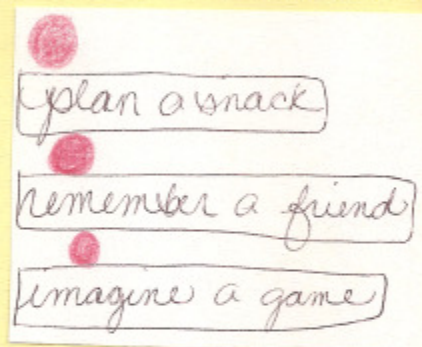 plan a snack
remember a friend
imagine a game